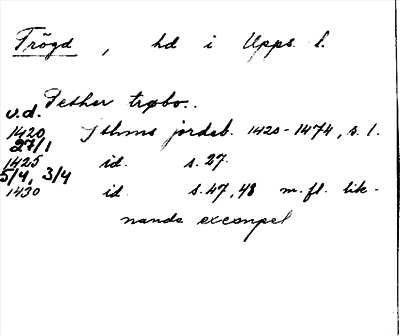 Trögd, hd i Upps. l.
Pether trøbo..
u.d.
1420 Sthms jordeb. 1420-1474, s. 1.
27/1
1425 id. s. 27.
5/4, 3/4
1430 id. s. 47, 48 m.fl. lik-
nande exempel